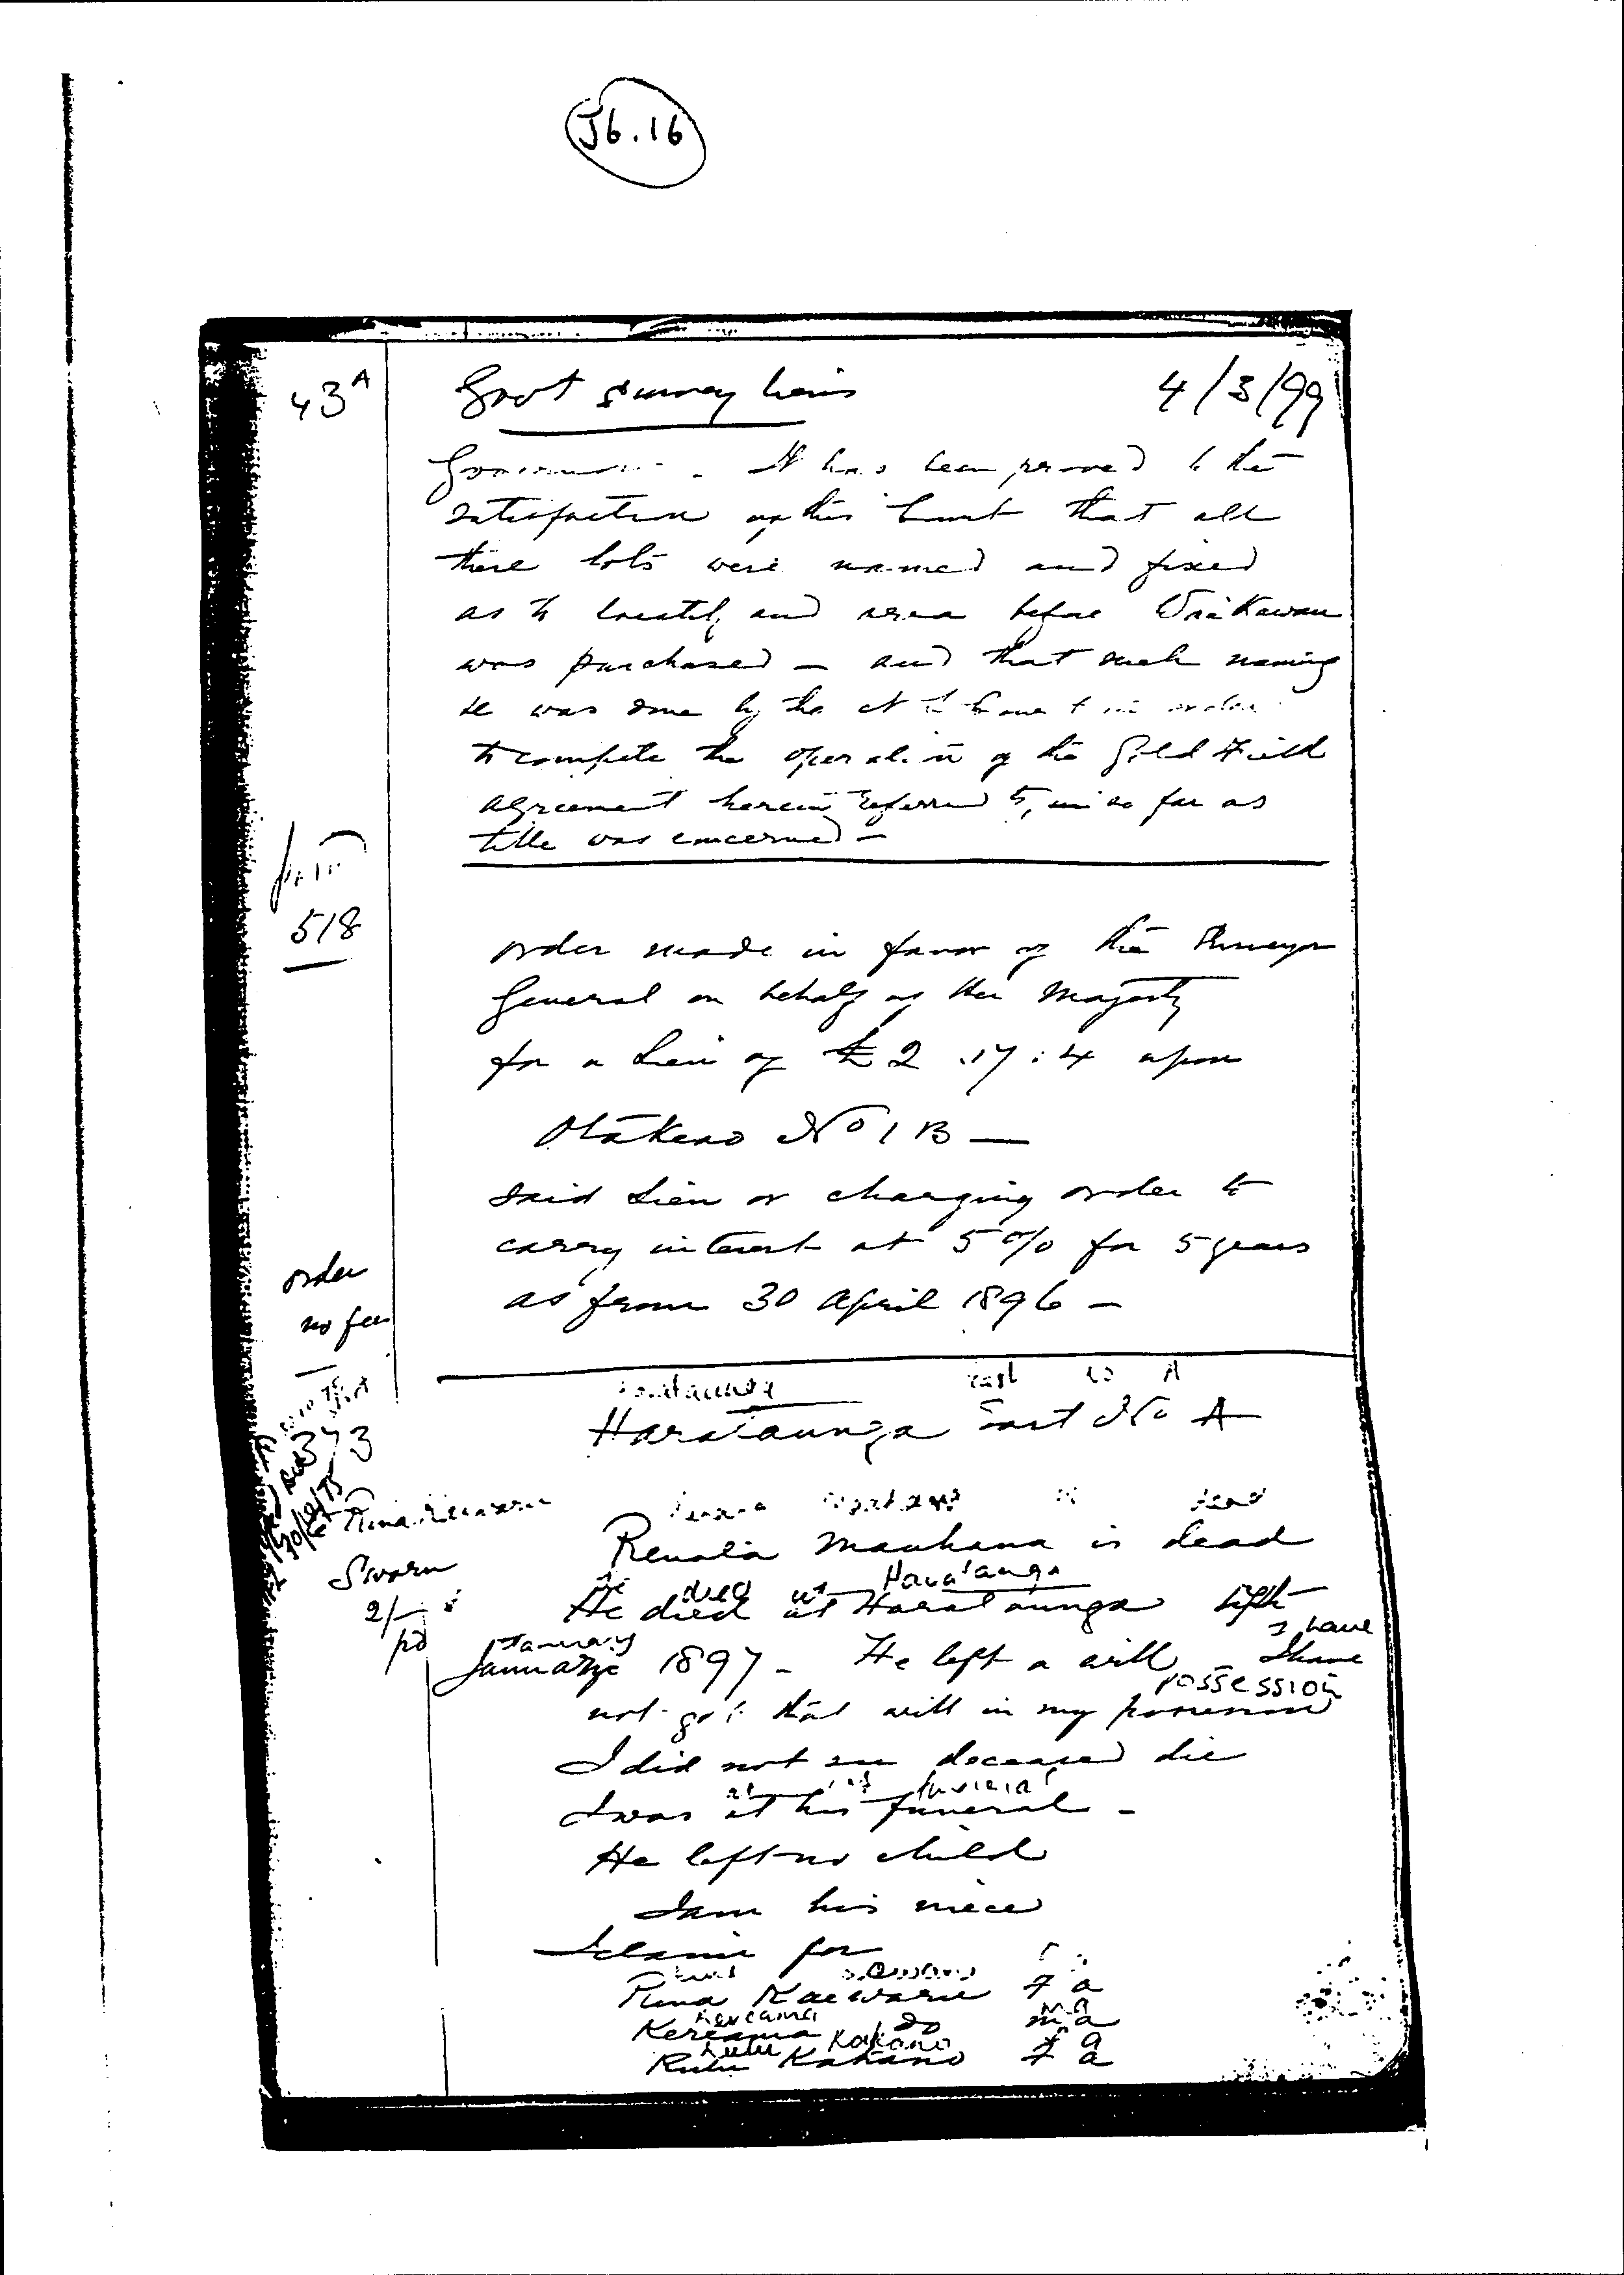 J6.16
43A Govt Survey Liens 4/3/99
It has been proved to the
satisfaction of this Court that all
these lots were named and fixed
as to locality and area before Waikawau
was purchased - and that such naming
&c was done by the N L Court in order
to complete the operation of the Gold Field
agreement herein referred to, in so far as
title was concerned -
518
order made in favor of the Surveyor
General on behalf of Her Majesty
for a Lien of £2.17:4 upon
Otakeao No 1 B -
said Lien or charging order to
carry interest at 5% for 5 years
as from 30 April 1896 -
order
no fee
East No A
Harataunga East No A
373
30/12/95
is dead
Renata Mauhana is dead
Sworn
2/-
pd
He died at Harataunga
He died at Harataunga
January I have
January 1897 - He left a will - I have
possession
not got that will in my possession
I did not see deceased die
at his funeral
I was at his funeral -
He left no child
I am his niece
I claim for
Rina Kaewaru f a
Kereama do m a
Kereama m a
Rutu Kakano f a
Rutu Kakano f a